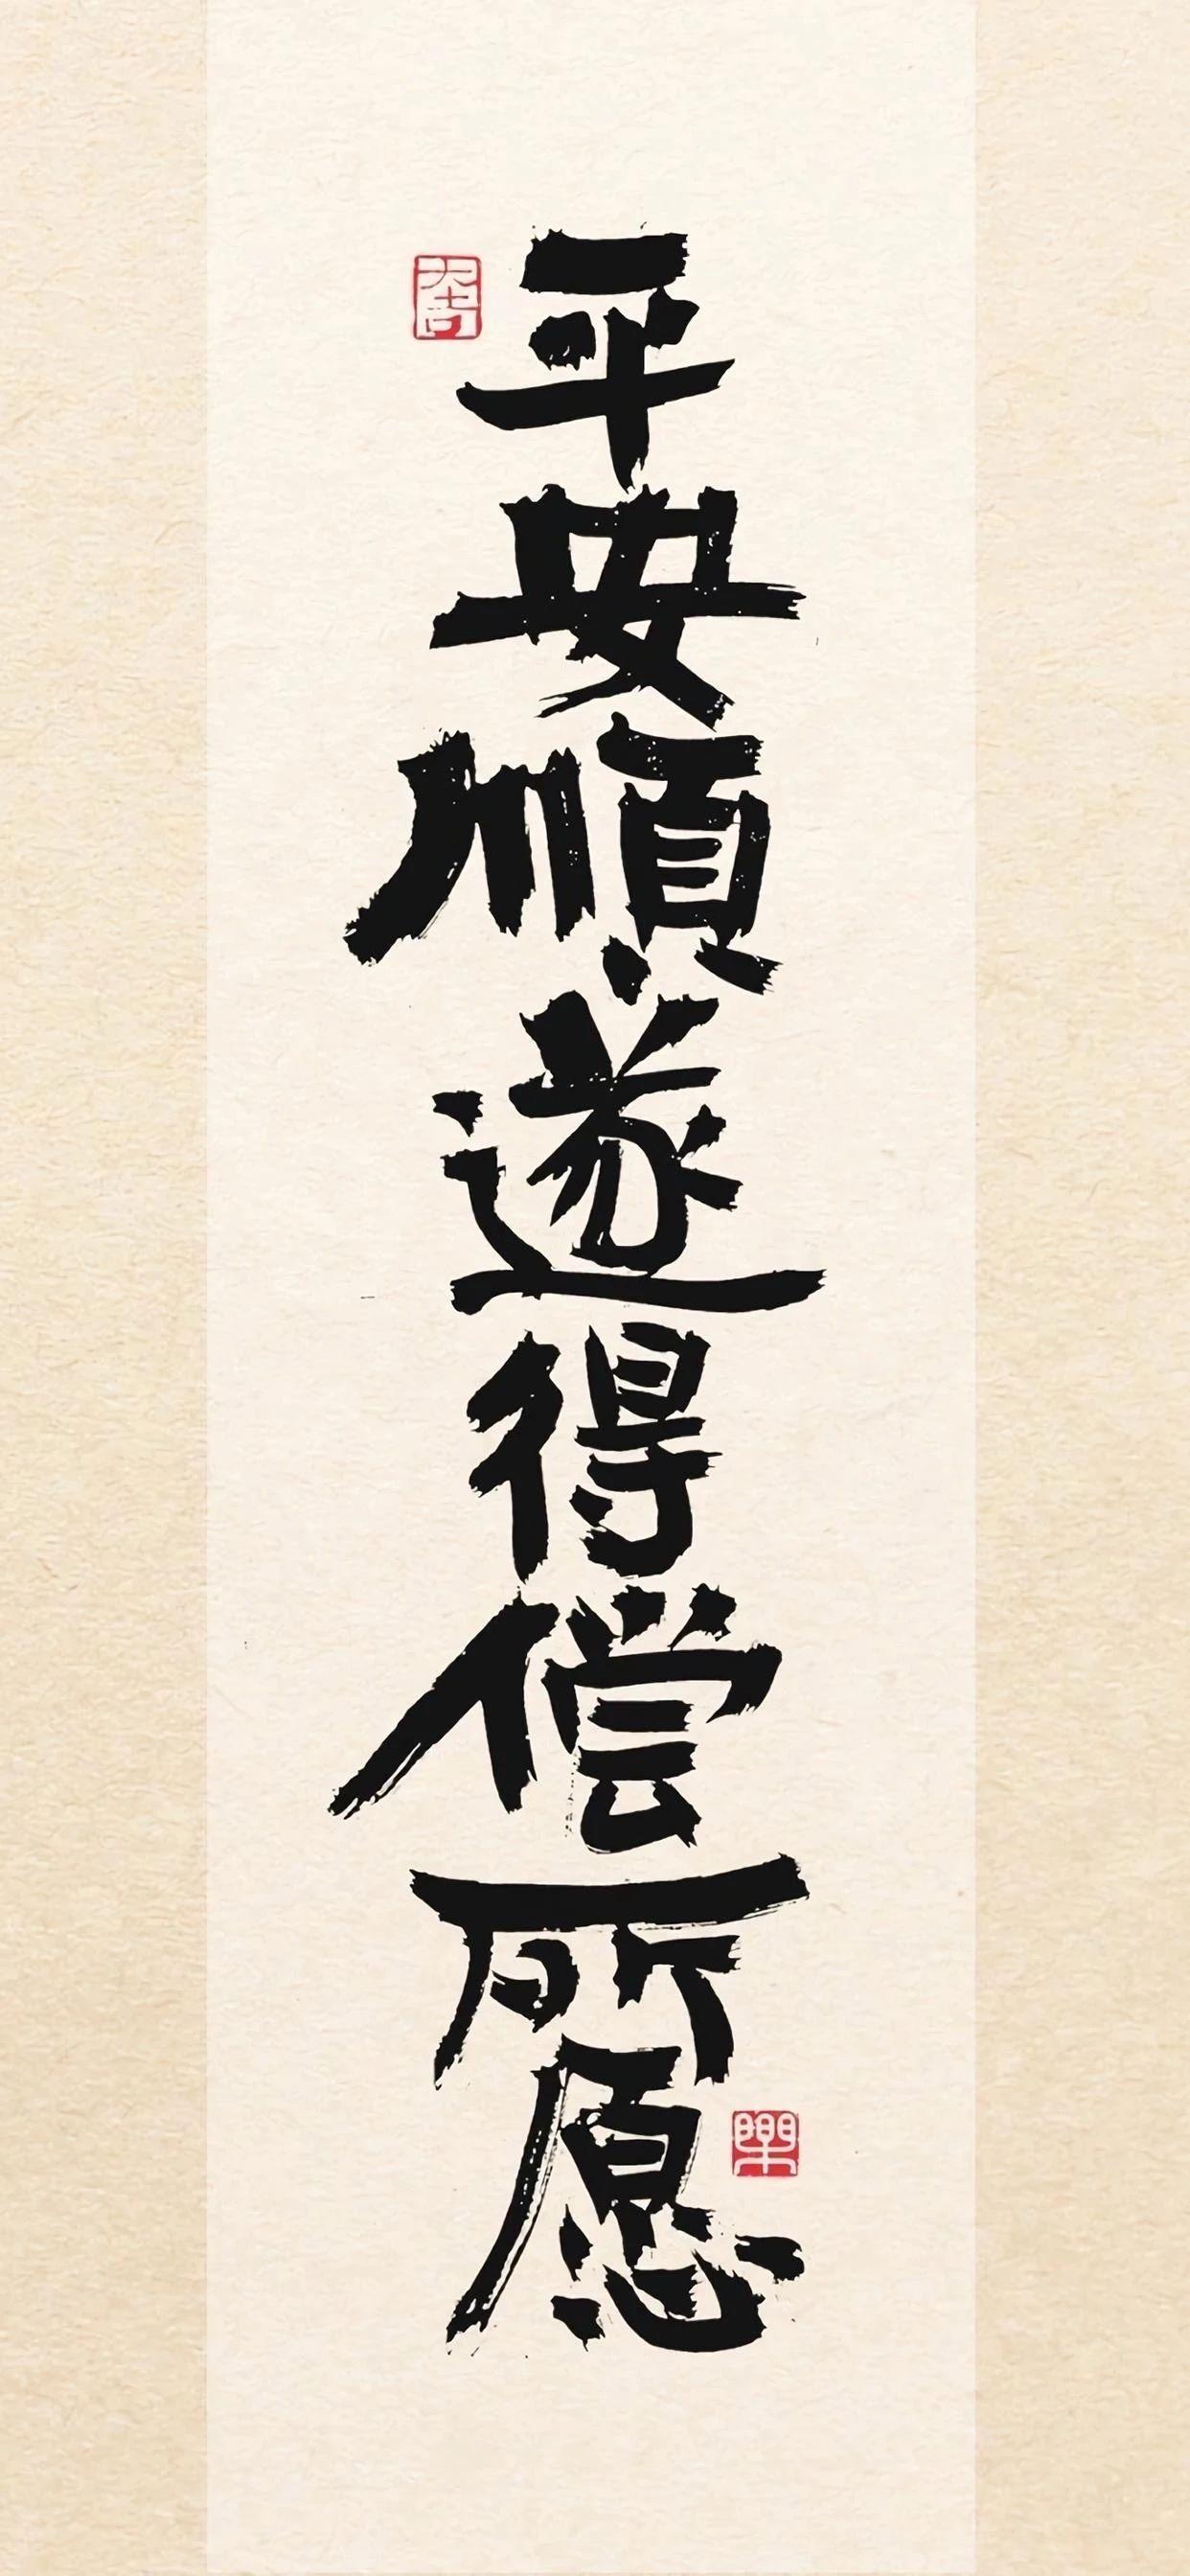 平安順遂得偿所愿